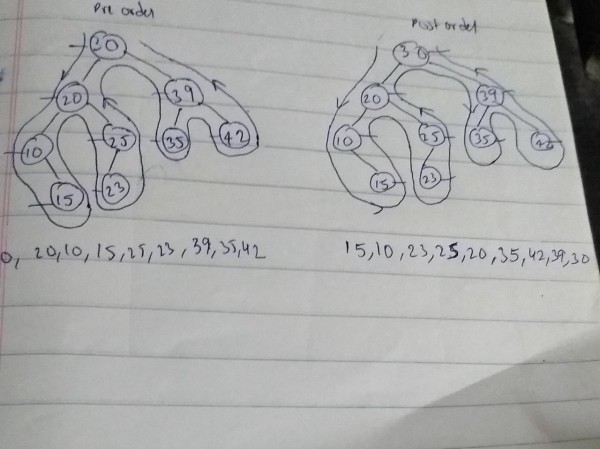 Pre order
Post order
30
20
39
10
25
35
42
15
23
30
20
39
10
25
35
42
15
23
0, 20,10,15,25,23,39,35,42
15,10,23,25,20,35,42,39,30